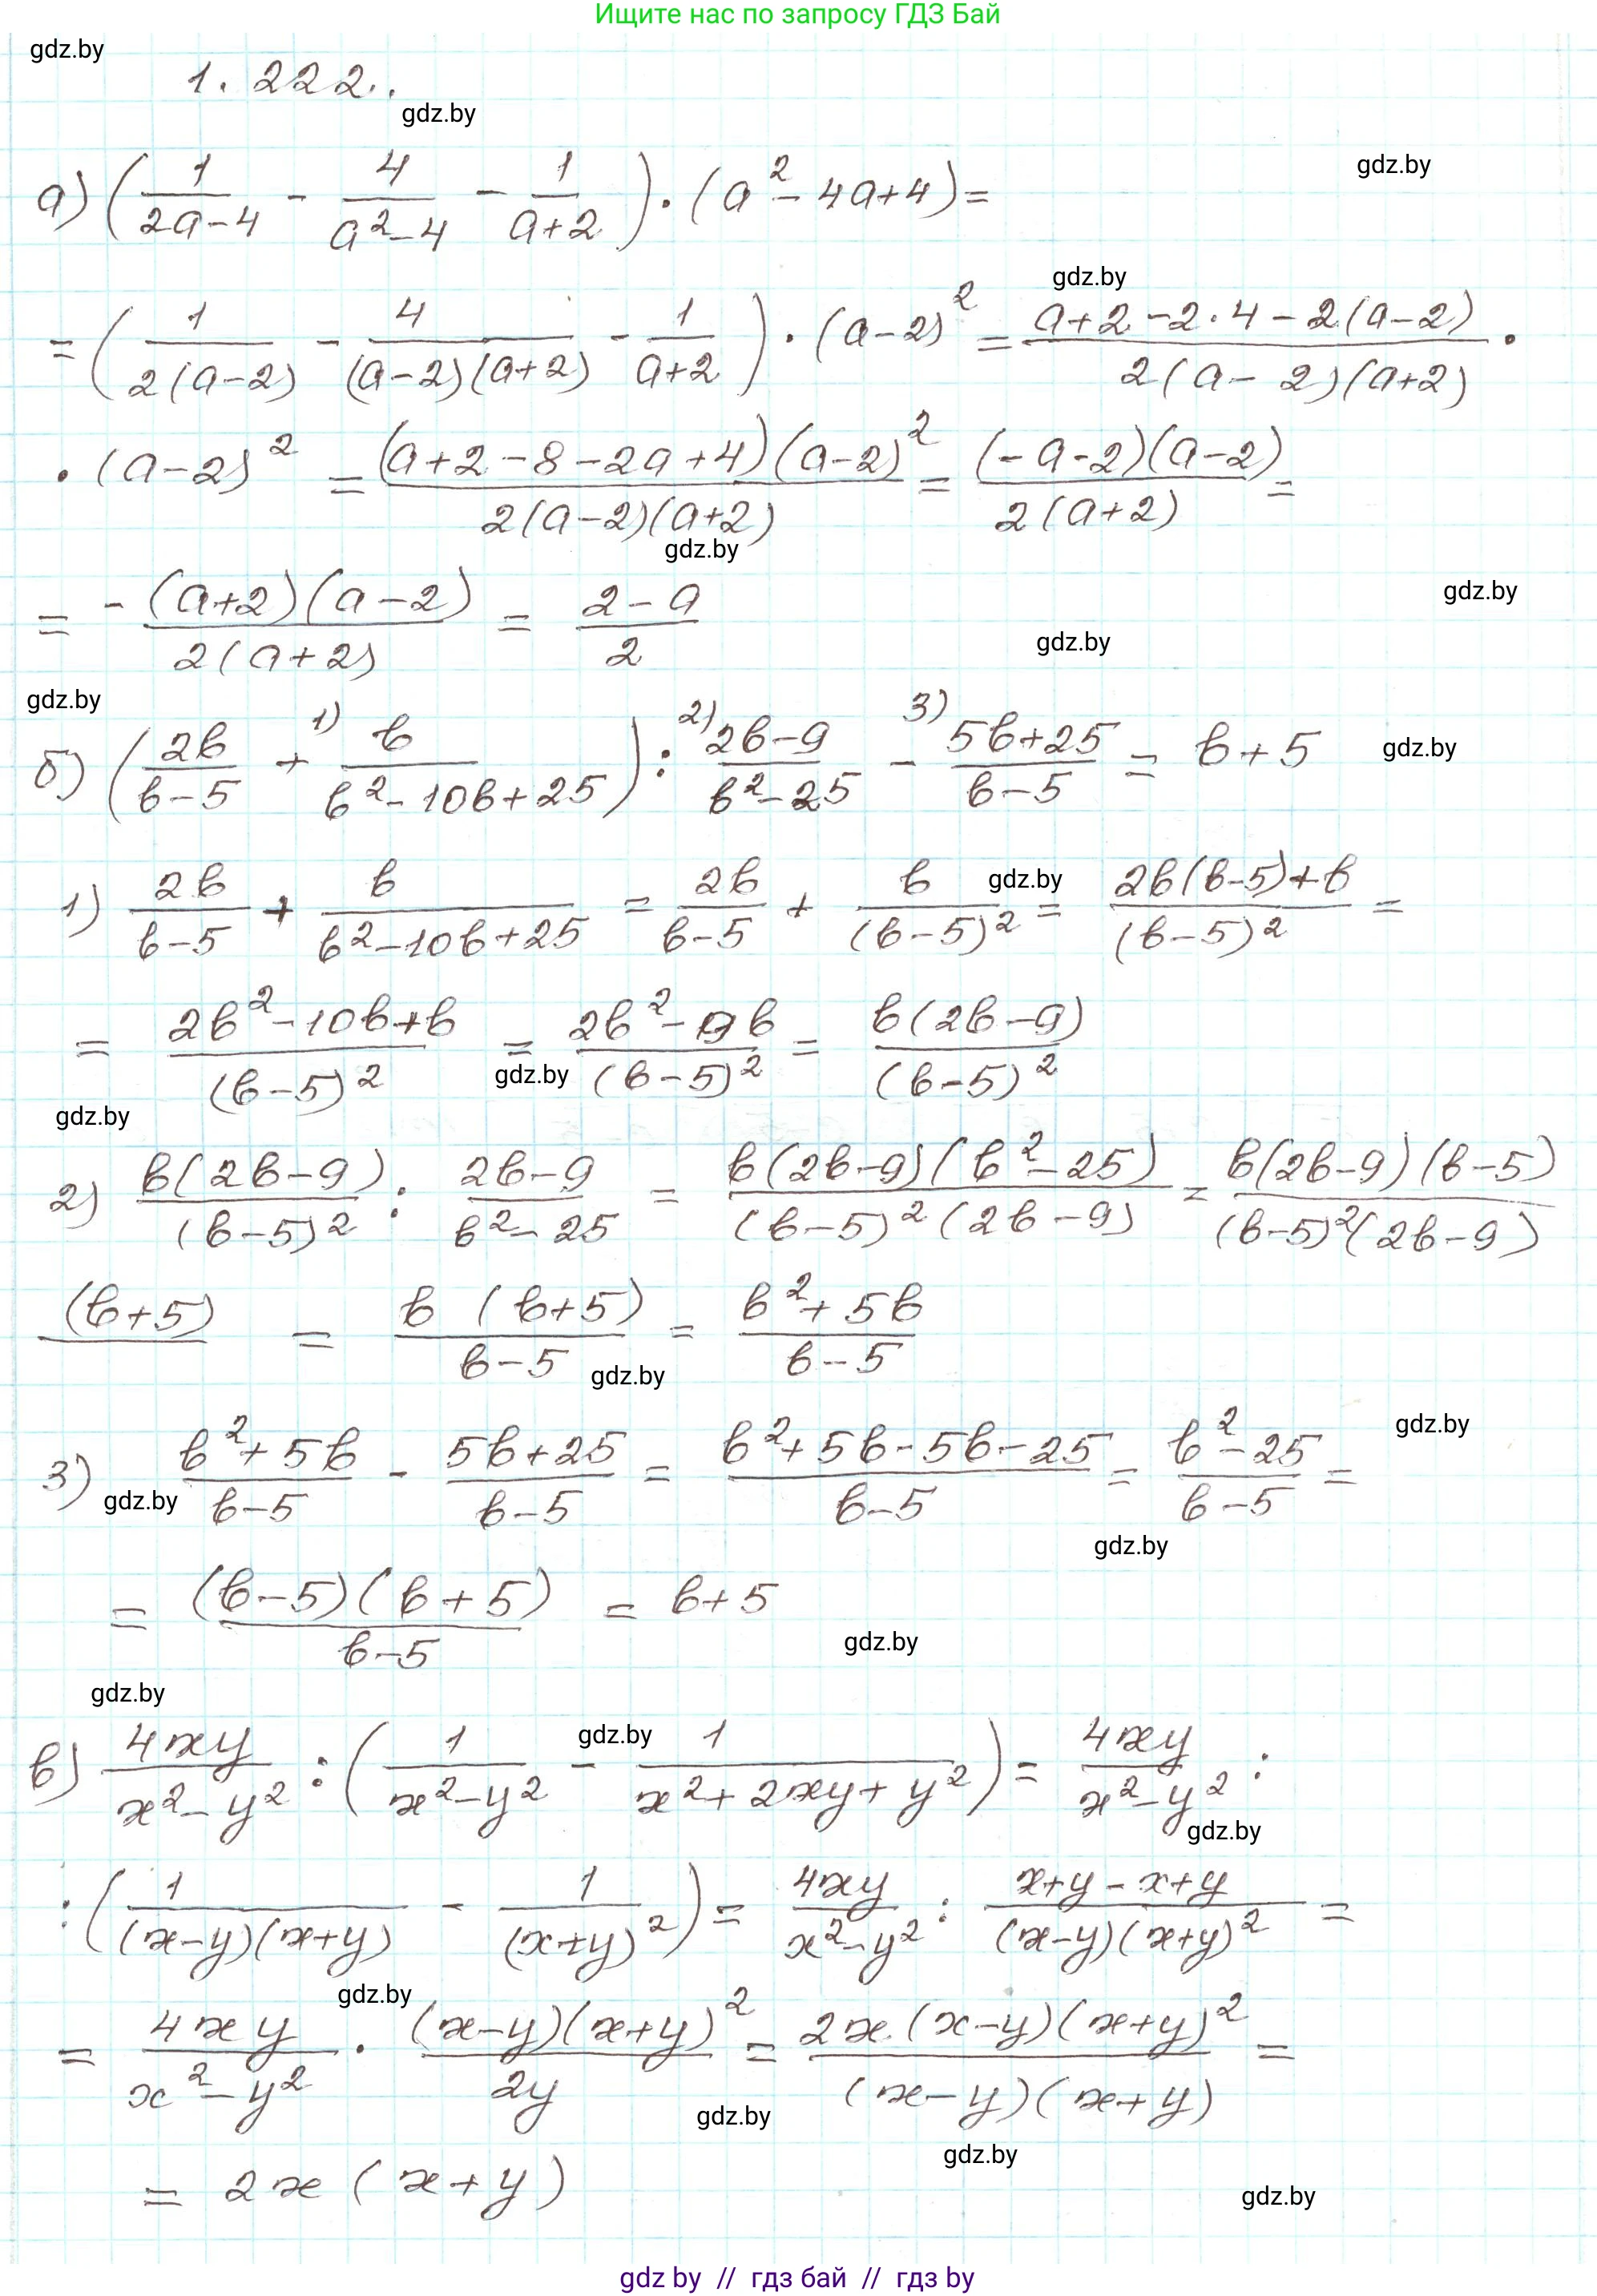 Ищите нас по запросу ГДЗ Бай
gdz.by
1.222.
gdz.by
gdz.by
а) (1/(2a-4) - 4/(a²-4) - 1/(a+2)) · (a²-4a+4) =
gdz.by
= (1/(2(a-2)) - 4/((a-2)(a+2)) - 1/(a+2)) · (a-2)² = (a+2-2·4-2(a-2))/(2(a-2)(a+2)) ·
· (a-2)² = ((a+2-8-2a+4)(a-2)²)/(2(a-2)(a+2)) = ((-a-2)(a-2))/(2(a+2)) =
gdz.by
gdz.by
= -((a+2)(a-2))/(2(a+2)) = (2-a)/2
gdz.by
gdz.by
б) (2b/(b-5) +¹⁾ b/(b²-10b+25)) :²⁾ (2b-9)/(b²-25) -³⁾ (5b+25)/(b-5) = b+5
gdz.by
1) 2b/(b-5) + b/(b²-10b+25) = 2b/(b-5) + b/((b-5)²) = (2b(b-5)+b)/((b-5)²) =
gdz.by
= (2b²-10b+b)/((b-5)²) = (2b²-9b)/((b-5)²) = (b(2b-9))/((b-5)²)
gdz.by
gdz.by
2) (b(2b-9))/((b-5)²) : (2b-9)/(b²-25) = (b(2b-9)(b²-25))/((b-5)²(2b-9)) = (b(2b-9)(b-5)/((b-5)²(2b-9)
(b+5) = (b(b+5))/(b-5) = (b²+5b)/(b-5)
gdz.by
gdz.by
3) (b²+5b)/(b-5) - (5b+25)/(b-5) = (b²+5b-5b-25)/(b-5) = (b²-25)/(b-5) =
gdz.by
gdz.by
= ((b-5)(b+5))/(b-5) = b+5
gdz.by
gdz.by
в) 4xy/(x²-y²) : (1/(x²-y²) - 1/(x²+2xy+y²)) = 4xy/(x²-y²) :
gdz.by
gdz.by
: (1/((x-y)(x+y)) - 1/((x+y)²)) = 4xy/(x²-y²) : (x+y-x+y)/((x-y)(x+y)²) =
gdz.by
= 4xy/(x²-y²) · ((x-y)(x+y)²)/(2y) = (2x·(x-y)(x+y)²)/((x-y)(x+y)) =
gdz.by
gdz.by
= 2x(x+y)
gdz.by
gdz by // гдз бай // гдз by